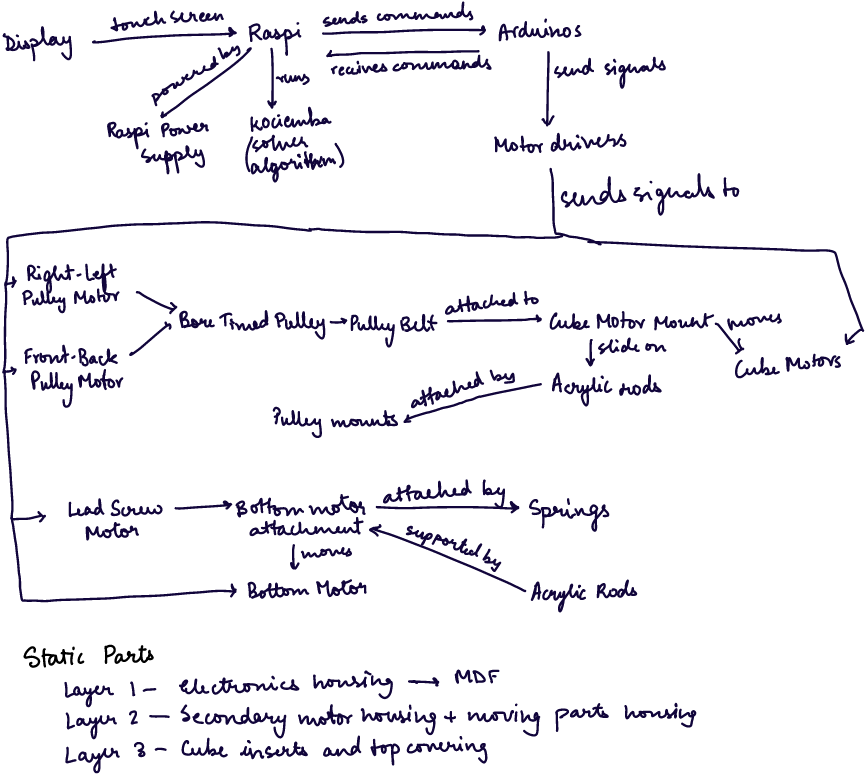 Display
touch screen
Raspi
sends commands
Arduinos
recives commands
powered by
runs
send signals
Raspi Power
Supply
Kociemba
(solver
algorithm)
Motor drivers
sends signals to
Right-Left
Pulley Motor
Front-Back
Pulley Motor
Bore Timed Pulley
Pulley Belt
attached to
Cube Motor Mount
moves
Cube Motors
slide on
Acrylic rods
attached by
Pulley mounts
Lead Screw
Motor
Bottom motor
attachment
attached by
Springs
supported by
moves
Bottom Motor
Acrylic Rods
Static Parts
Layer 1 - Electronics housing → MDF
Layer 2 - Secondary motor housing + moving parts housing
Layer 3 - Cube inserts and top covering